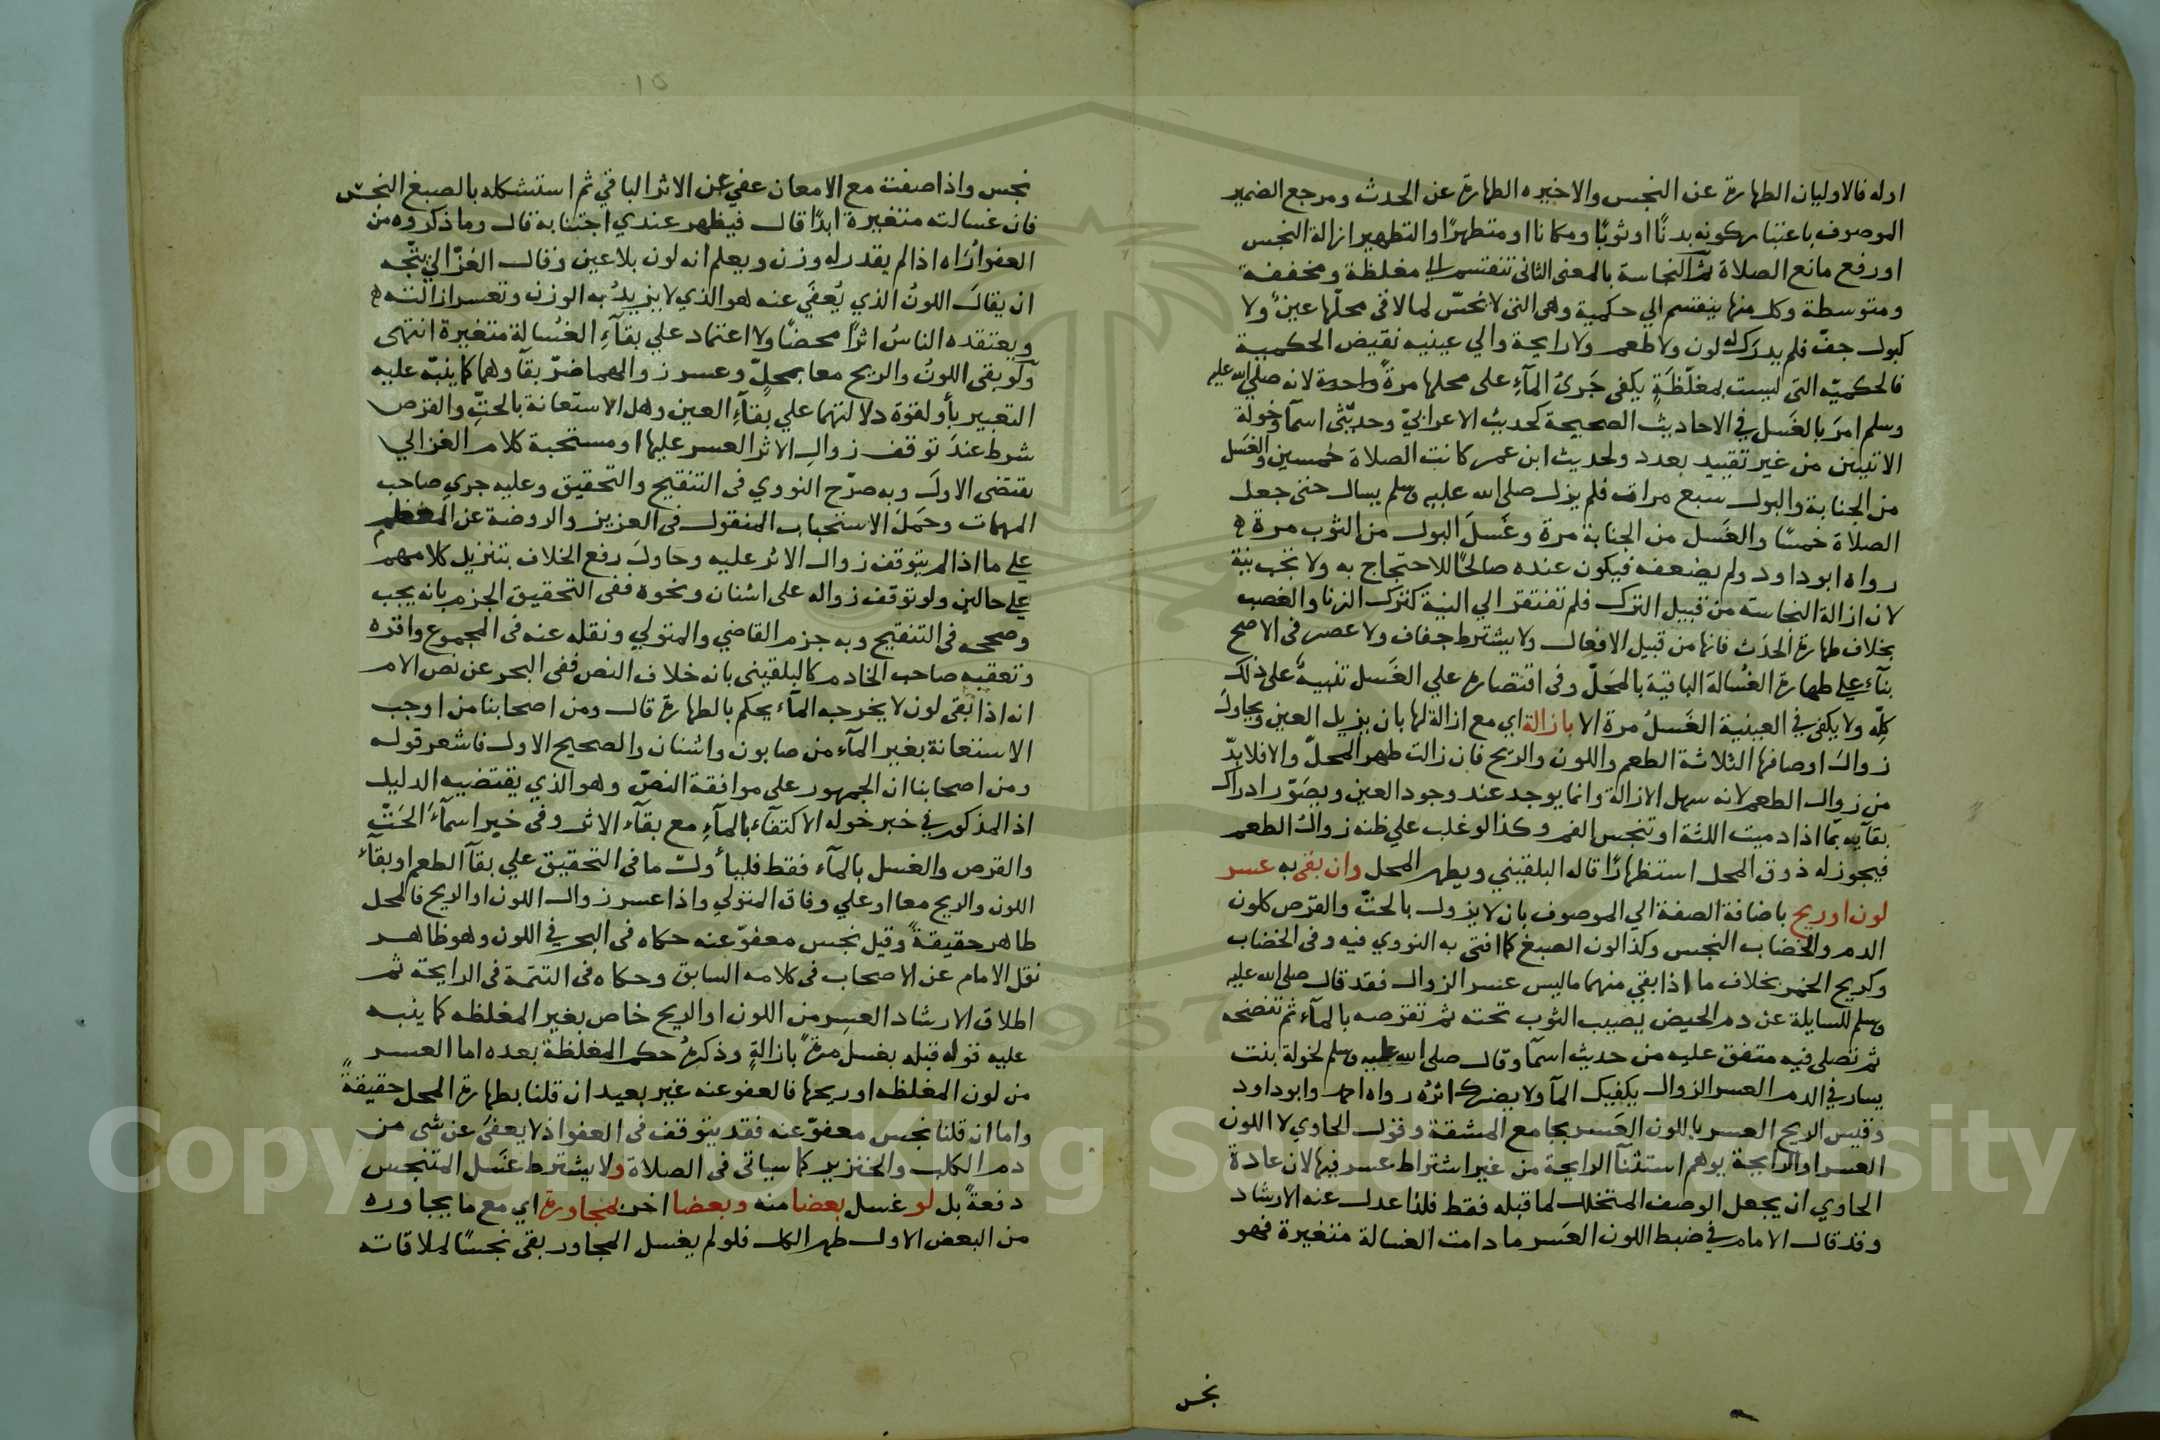 ادله فالاوليان الطهارة عن النجس والاخيره الطهارة عن الحدث ومرجع الضمير
الموصوف باعتبار كونه بدنًا او ثوبًا ومكانا او متطهرًا والتطهير ازالة النجس
او رفع مانع الصلاة ثم النجاسة بالمعنى الثانى تنقسم الى مغلظة ومخففة
ومتوسطة وكل منها ينقسم الي حكمية وهى التى لا تحسّ لمالاقى محلّها عينٌ ولا
كبول جفّ فلم يدرك له لون ولا طعم ولا رايحة والي عينيه نقيض الحكمية
فالحكميّه التى ليست بمغلّظَةٍ يكفى جَرىُ المآءِ على محلها مرةً واحدة لانه صلي الله عليه
وسلم امرَ بالغَسل في الاحاديث الصحيحة كحديث الاعرابيّ وحديثَى اسمآ وخولة
الاتيين من غير تقييد بعدد ولحديث ابن عمر كانت الصلاة خمسين والغَسل
من الجنابة والبول سبع مرات فلم يزل صلى الله عليه وسلم يسال حتى جعل
الصلاة خمسًا والغَسل من الجنابة مرة وغَسلَ البول من الثوب مرة
رواه ابو داود ولم يضعفه فيكون عنده صالحًا للاحتجاج به ولا تجب نية
لان ازالة النجاسة من قبيل الترك فلم تفتقر الي النية كترك الزنا والغصب
بخلاف طهارة الحَدَث فانها من قبيل الافعال ولا يشترط جفاف ولا عصر فى الاصح
بنآء على طهارة الغُسالة الباقية بالمَحَلّ وفى اقتصاره علي الغَسل تنبيهٌ على ذلك
كلّه ولا يكفى في العينية الغَسلُ مرة الا بازالة اي مع ازالة لها بان يزيل العين ويحاولَ
زوالَ اوصافها الثلاثة الطعم واللون والرّيح فان زالت طهر المحلّ والا فلا بدّ
من زوال الطعم لانه سهل الازالة وانما يوجد عند وجود العين ويصَوّر ادراك
بقآيه بما اذا دميت اللثة او تنجس الفم وكذا لو غلب علي ظنه زوالُ الطعم
فيجوز له ذوق المحل استظهارًا قاله البلقيني ويطهر المحل وان بقى به عسر
لون او ريح باضافة الصفة الي الموصوف بان لا يزول بالحتّ والقرص كلون
الدم والخضاب النجس وكذا لون الصبغ كما افتى به النووي فيه وفى الخضاب
وكريح الخمر بخلاف ما اذا بقي منهما ماليس عسر الزوال فقد قال صلى الله عليه
وسلم للسايلة عن دم الحيض يصيب الثوب تحته ثم تقرصه بالمآء ثم تنضحه
ثم تصلى فيه متفق عليه من حديث اسمآ وقال صلى الله عليه وسلم لخولة بنت
يسار في الدم العسر الزوال يكفيك المآ ولا يضرك اثرُه رواه احمد وابو داود
وقيس الريح العسر باللون العَسر بجامع المشقة وقول الحاوي لا اللون
العسر او الرايحة يوهم استثنآ الرايحة من غير اشتراط عسر فيها لان عادة
الحاوي ان يجعل الوصف المتخلل لما قبله فقط فلذا عدل عنه الارشاد
وقد قال الامام في ضبط اللون العَسر ما دامت الغسالة متغيرة فهو
نجس
نجس واذا صفت مع الامعان عفي عن الاثر الباقي ثم استشكله بالصبغ النجس
فان غسالته متغيرة ابدًا قال فيظهر عندي اجتنابه قال وما ذكروه من
العفو اُرَاه اذا لم يقدر له وزن ويعلم انه لون بلا عين وقال الغزّالي يتّجه
ان يقالَ اللونُ الذي يُعفَى عنه هو الذي لا يزيدُ به الوزن وتعسر ازالته
ويعتقده الناسُ اثرًا محضًا ولا اعتماد علي بقآءِ الغُسالة متغيرة انتهى
ولو بقى اللونُ والريح معا بمحلٍّ وعسر زوالهما ضرّ بقآوهما كما ينبّه عليه
التعبير بأو لقوة دلالتهما علي بقآءِ العين وهل الاستعانة بالحتّ والقرص
شرط عندَ توقف زوالِ الاثر العسر عليها او مستحبة كلام الغزالي
يقتضى الاولَ وبه صرّح النووي فى التنقيح والتحقيق وعليه جري صاحب
المهمات وحَمَلَ الاستحباب المنقول فى العزيز والروضة عن المعظم
علي ما اذا لم يتوقف زوال الاثر عليه وحاولَ رفع الخلاف بتنزيل كلامهم
علي حالين ولو توقف زواله على اشنان ونحوه ففى التحقيق الجزم بانه يجب
وصححه فى التنقيح وبه جزم القاضي والمتولي ونقله عنه فى المجموع واقره
وتعقبه صاحب الخادم كالبلقينى بانه خلاف النص ففى البحر عن نص الام
انه اذا بَقى لون لا يخرجه المآء يحكم بالطهارة قال ومن اصحابنا من اوجب
الاستعانة بغير المآء من صابون واشنان والصحيح الاول فاشعر قوله
ومن اصحابنا ان الجمهور على موافقة النصّ وهو الذي يقتضيه الدليل
اذ المذكور في خبر خوله الاكتفآء بالمآءِ مع بقآء الاثر وفى خبر اسمآءَ الحَتّ
والقرص والغسل بالمآء فقط فليأولّ ما فى التحقيق علي بقآ الطعم او بقآء
اللون والريح معا او علي وفاق المتولي واذا عسر زوال اللون او الريح فالمحل
طاهر حقيقةً وقيل نجس معفوّ عنه حكاه فى البحر في اللون وهو ظاهر
نقل الامام عن الاصحاب فى كلامه السابق وحكاه فى التتمة فى الرايحة ثم
اطلاق الارشاد العسِر من اللون او الريح خاص بغير المغلظه كما ينبه
عليه قوله قبله بغسل مرةً بازالةٍ وذكرهُ حكم المغلظة بعده اما العسر
من لون المغلظه او ريحها فالعفو عنه غير بعيد ان قلنا بطهارة المحل حقيقةً
واما ان قلنا نجس معفوّ عنه فقد يتوقف فى العفو اذ لا يعفَى عن شى من
دم الكلب والخنزير كما سياتى فى الصلاة ولا يشترط غسل المتنجس
دفعةً بل لو غسل بعضا منه وبعضا اخر بمجاورة اي مع ما يجاوره
من البعض الاول طهر الكل فلو لم يغسل المجاور بقى نجسًا لملاقاته
Copyright © King Saud University
1957